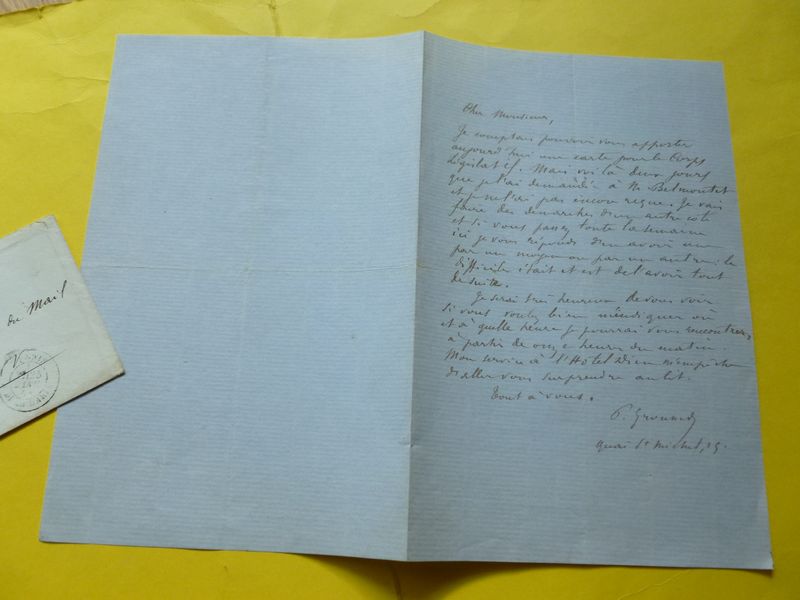 Cher Monsieur,
Je comptais pouvoir vous apporter
aujourd'hui une carte pour le Corps
législatif. Mais voilà deux jours
que je l'ai demandée à Mr Belmontet
et je ne l'ai pas encore reçue. Je vais
faire des démarches d'un autre côté
et si vous passez toute la semaine
ici je vous réponds d'en avoir une
par un moyen ou par un autre: le
difficile était et est de l'avoir tout
de suite.
Je serai très heureux de vous voir
si vous voulez bien m'indiquer où
et à quelle heure je pourrai vous rencontrer,
à partir de onze heures du matin
Mon service à l'Hôtel Dieu m'empêche
d'aller vous surprendre au lit.
Tout à vous.
P. Grousset
quai St Michel, 25.
du Mail